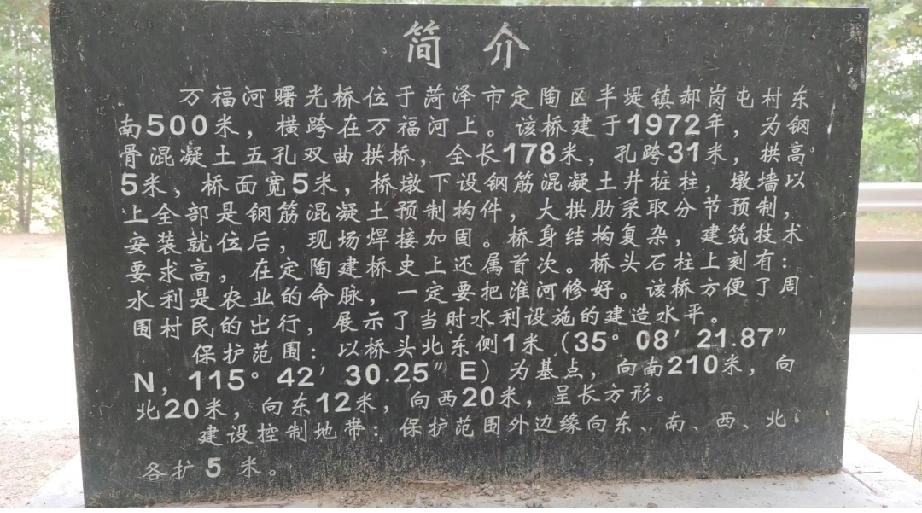 简介
万福河曙光桥位于菏泽市定陶区半堤镇郝岗屯村东
南500米，横跨在万福河上。该桥建于1972年，为钢
骨混凝土五孔双曲拱桥，全长178米，孔跨31米，拱高
5米，桥面宽5米，桥墩下设钢筋混凝土井桩柱，墩墙以
上全部是钢筋混凝土预制构件，大拱肋采取分节预制，
安装就位后，现场焊接加固。桥身结构复杂，建筑技术
要求高，在定陶建桥史上还属首次。桥头石柱上刻有：
水利是农业的命脉，一定要把淮河修好。该桥方便了周
围村民的出行，展示了当时水利设施的建造水平。
保护范围：以桥头北东侧1米（35°08′21.87″
N，115°42′30.25″E）为基点，向南210米，向
北20米，向东12米，向西20米，呈长方形。
建设控制地带：保护范围外边缘向东、南、西、北
各扩5米。